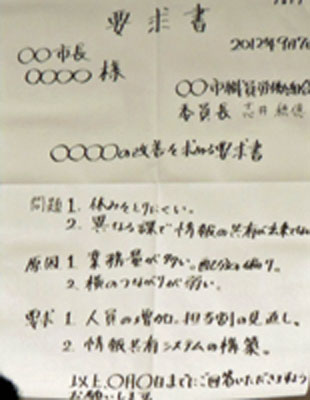 要求書
2012年9月7
〇〇市長
〇〇〇〇様
〇〇市職員労働組合
委員長
〇〇〇〇の改善を求める要求書
問題 1. 休みをとりにくい。
2. 異なる課で情報の共有が出来ない
原因 1. 業務量が多い。配分の偏り。
2. 横のつながりが弱い。
要求 1. 人員の増加。担当割の見直し。
2. 情報共有システムの構築。
以上、〇月〇日までにご回答いただきますよう
お願いします